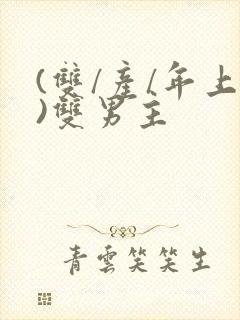 (雙/產/年上
)雙男主
青雲笑笑生